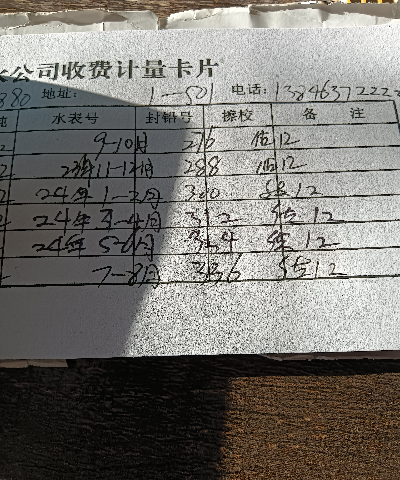 公司收费计量卡片
380 地址: 1-501 电话: 1384637222
水表号 封铅号 擦校 备 注
9-10月 276 估12
23年11-12月 288 估12
24年1-2月 300 估12
24年3-4月 312 估12
24年5-6月 324 估12
7-8月 336 估12